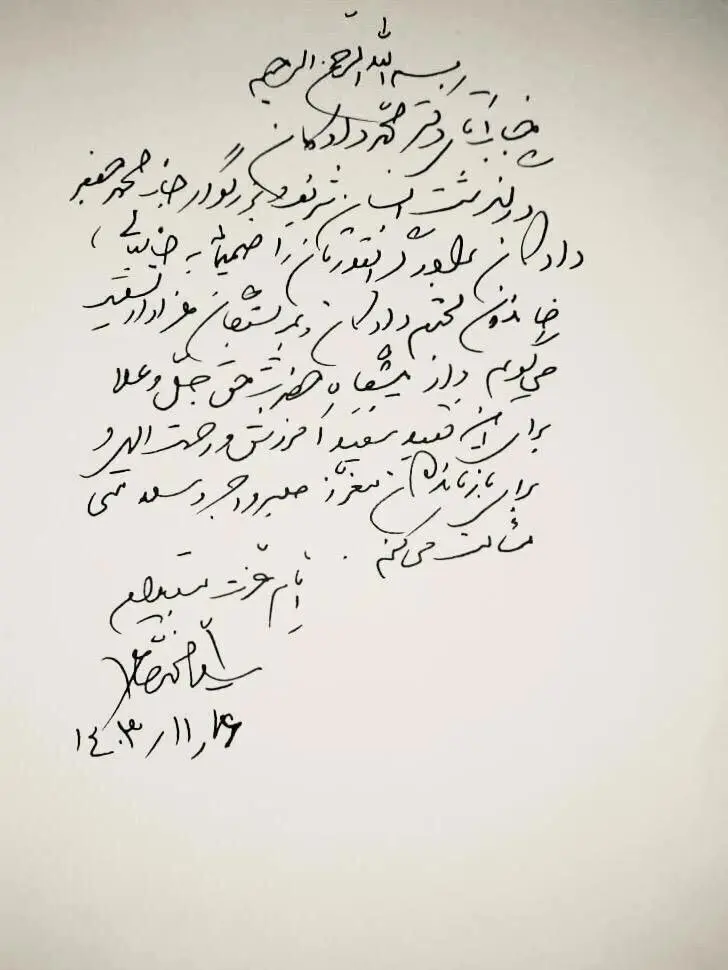 بسم الله الرحمن الرحیم
جناب آقای دکتر محمد دادکان
درگذشت انسان شریف و بزرگوار جناب محمد جعفر
دادکان برادر گرانقدرتان را صمیمانه به جنابعالی،
خاندان محترم دادکان و بستگان عزادار تسلیت
می‌گویم و از پیشگاه حضرت حق جلّ و علا
برای آن فقید سعید آمرزش و رحمت الهی و
برای بازماندگان معزز صبر و اجر و سلامتی
مسألت می‌کنم.
ایام عزت مستدام
سید محمد خاتمی
۱۴۰۳/۱۱/۲۶